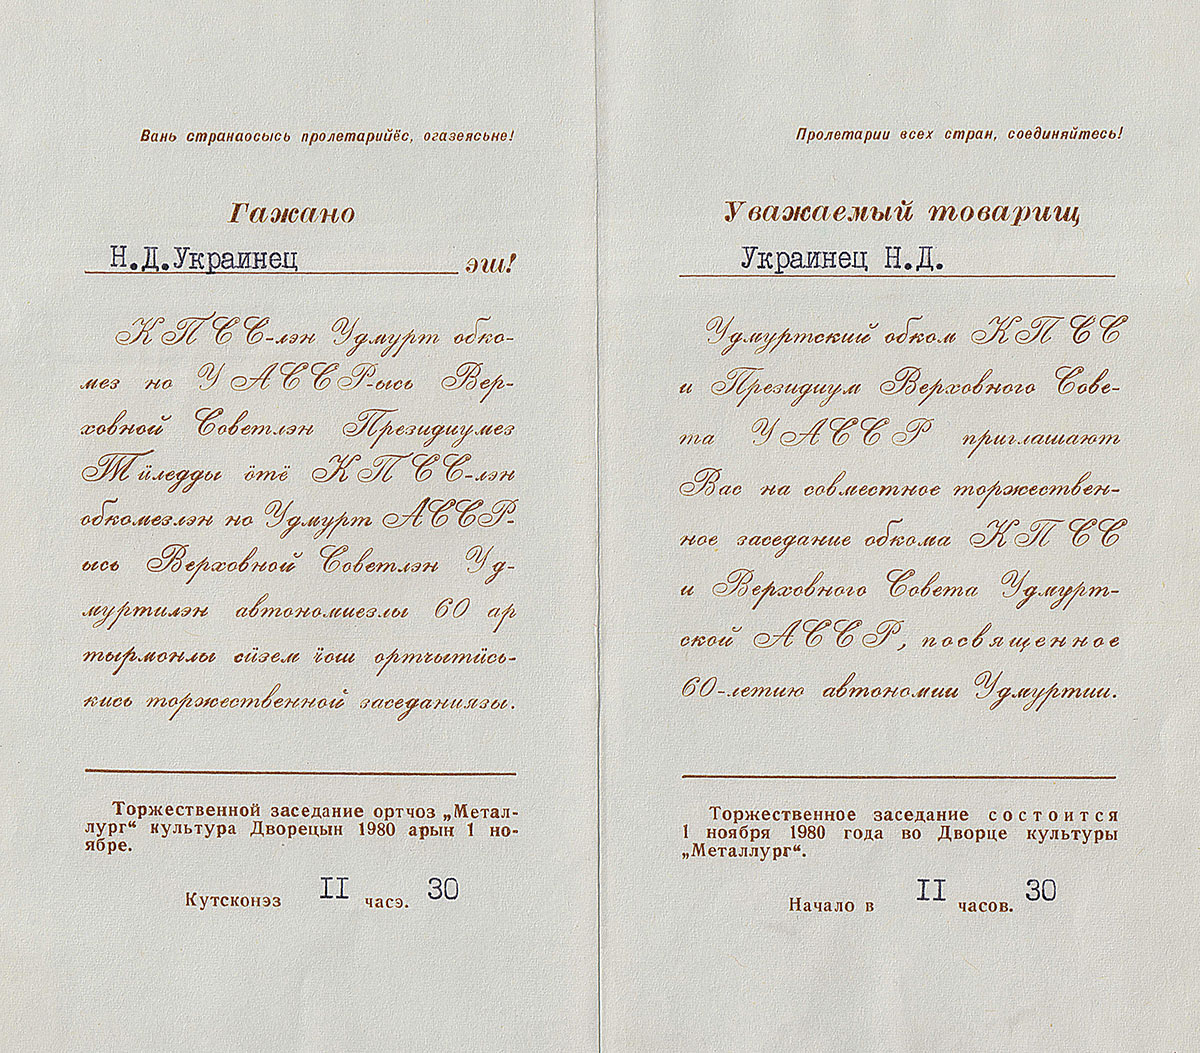 Вань странаосысь пролетарийёс, огазеяське!
Гажано
Н.Д.Украинец эш!
КПСС-лэн Удмурт обко-
мез но УАССР-ысь Вер-
ховной Советлэн Президиумез
Тӥледды ӧтё КПСС-лэн
обкомезлэн но Удмурт АССР-
ысь Верховной Советлэн Уд-
муртилэн автономиезлы 60 ар
тырмонлы сӥзем ӵош ортчытӥсь-
кись торжественной заседаниязы.
Торжественной заседание ортчоз „Метал-
лург“ культура Дворецын 1980 арын 1 но-
ябре.
Кутсконэз II часэ. 30
Пролетарии всех стран, соединяйтесь!
Уважаемый товарищ
Украинец Н.Д.
Удмуртский обком КПСС
и Президиум Верховного Сове-
та УАССР приглашают
Вас на совместное торжествен-
ное заседание обкома КПСС
и Верховного Совета Удмурт-
ской АССР, посвященное
60-летию автономии Удмуртии.
Торжественное заседание состоится
1 ноября 1980 года во Дворце культуры
„Металлург“.
Начало в II часов. 30